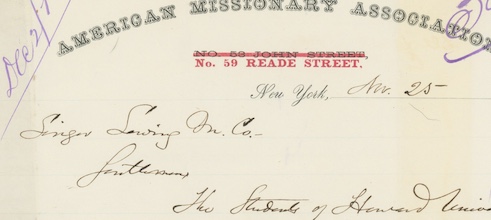 AMERICAN MISSIONARY ASSOCIATION
No. 56 JOHN STREET,
No. 59 READE STREET.
New York, Nov. 25
Dec 2/
Singer Sewing M. Co.-
Gentlemen
The Students of Howard Univ